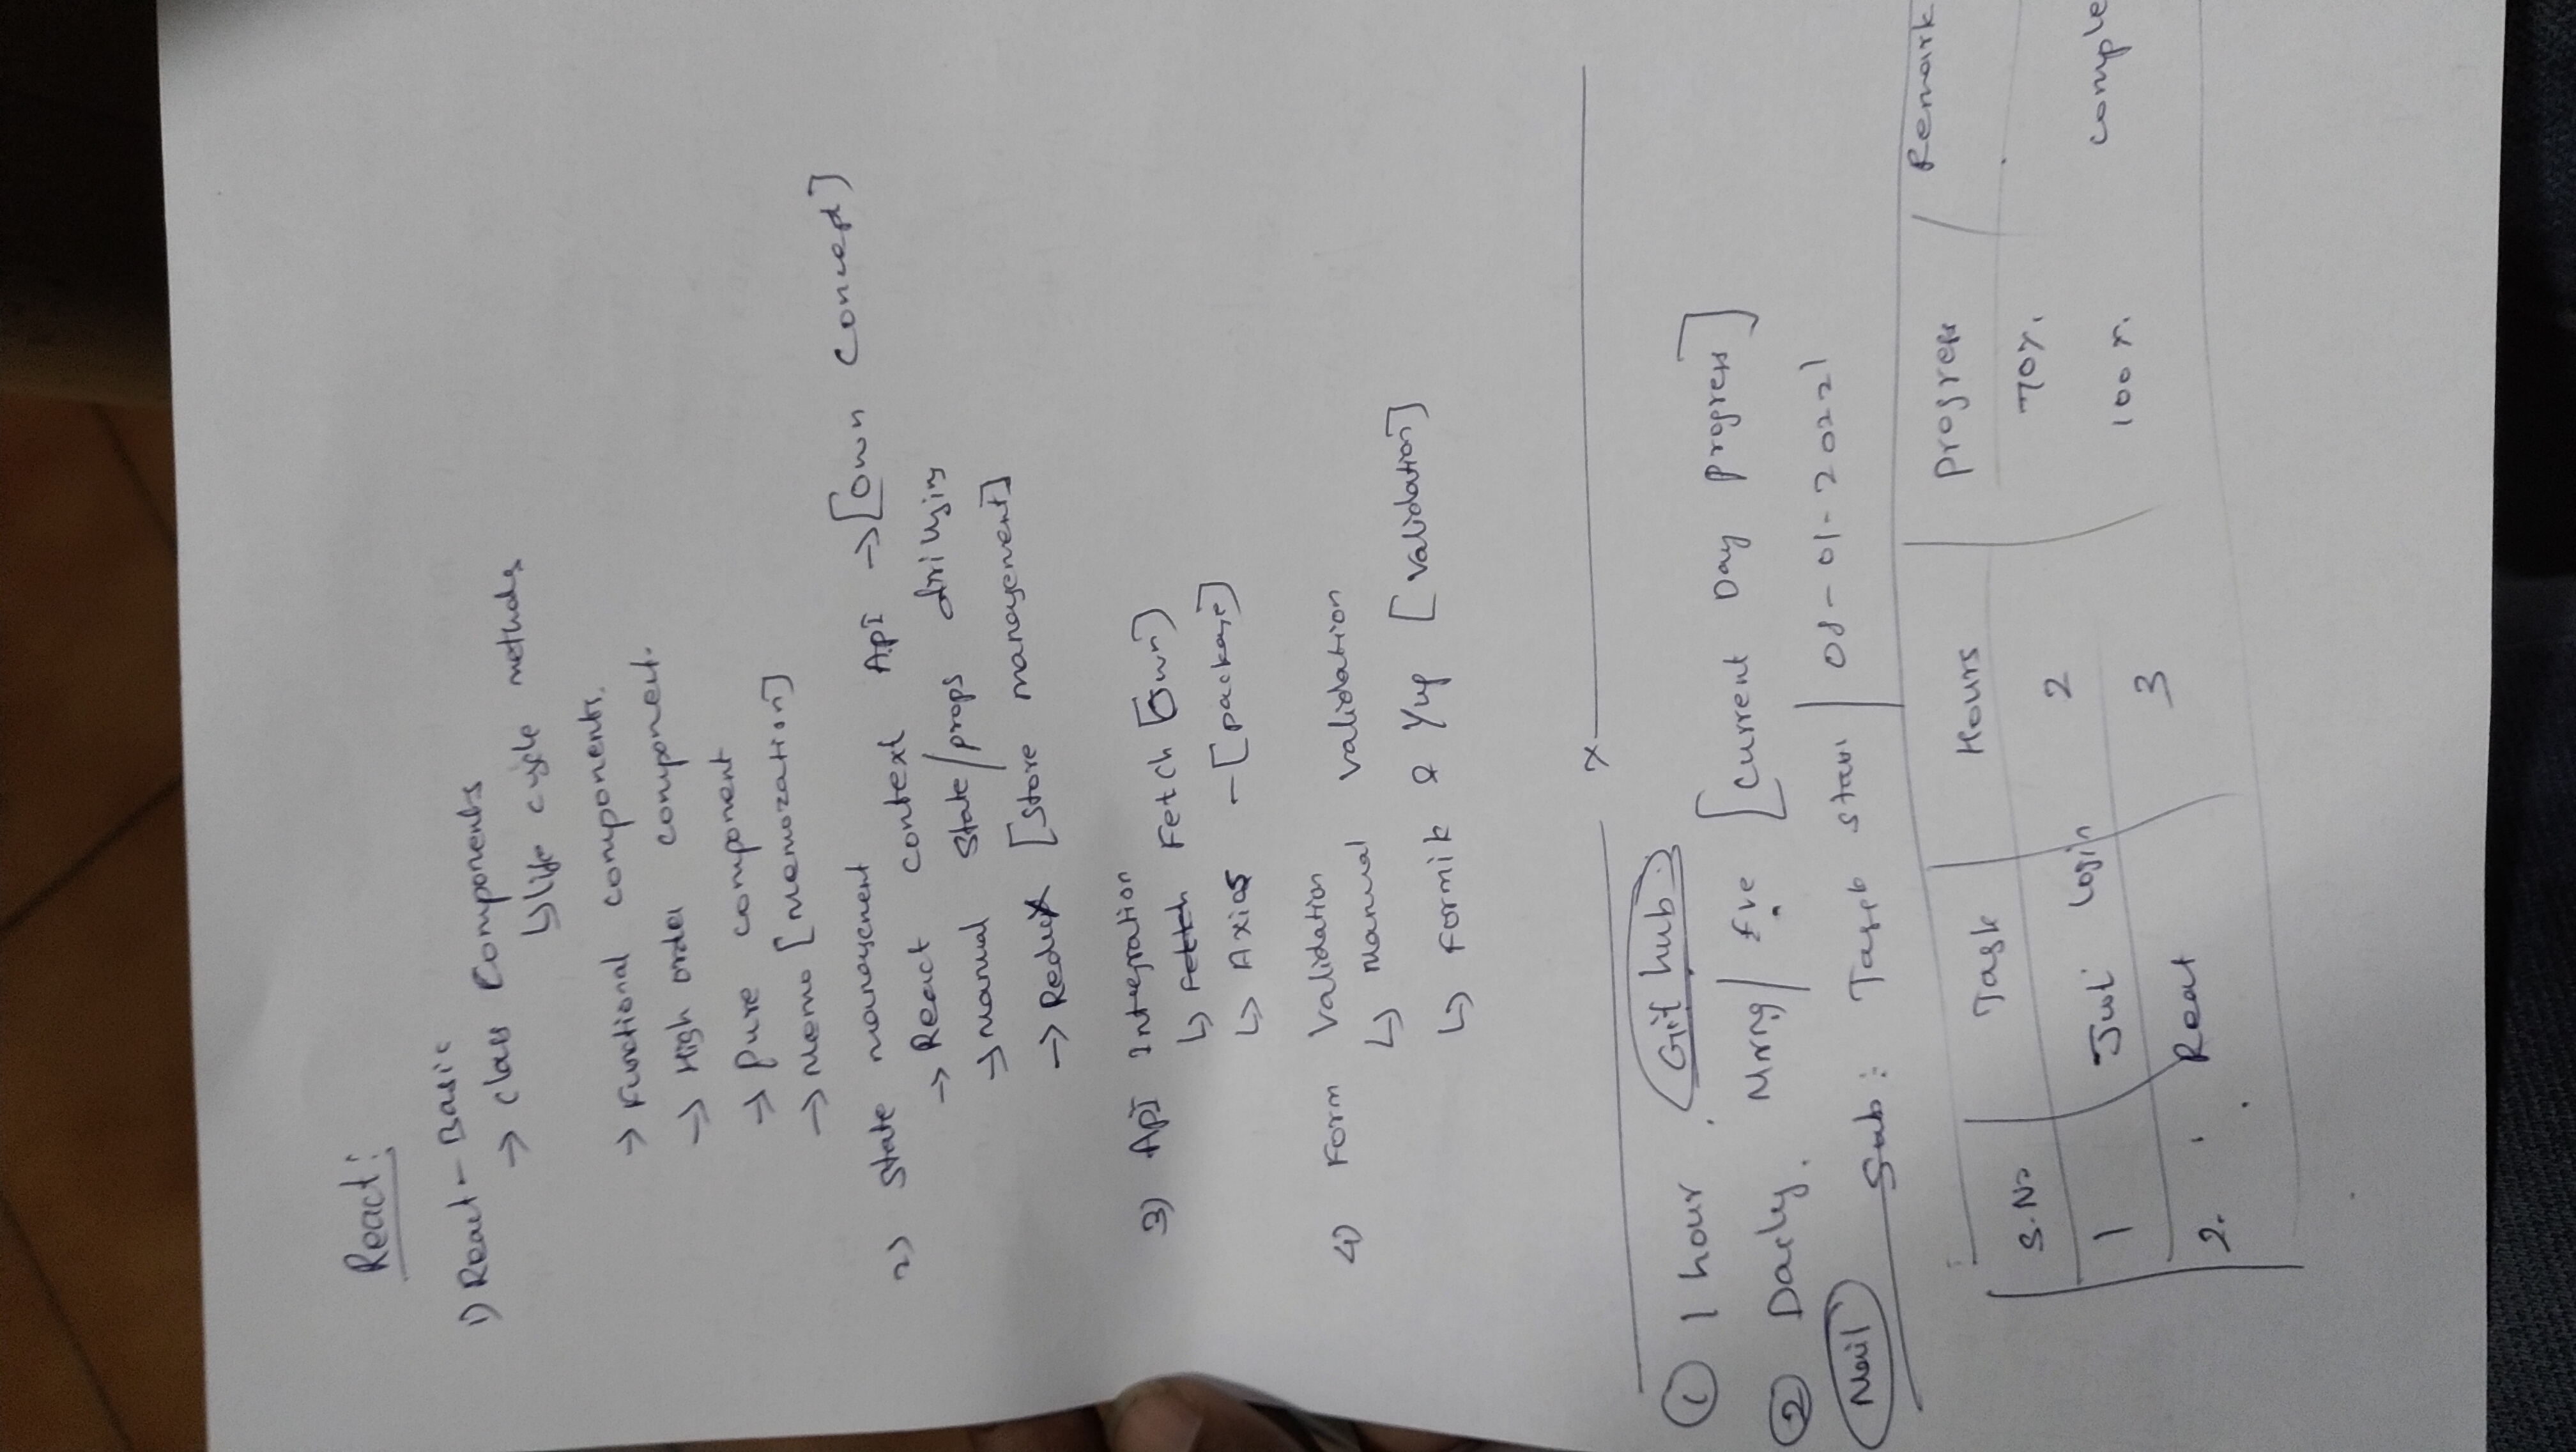 React:
1) React - Basic
→ class Components
↳ life cycle methods
→ Functional components.
→ High order component.
→ Pure component
→ Memo [Memozation]
2) State management
→ React context API → [Own Concept]
→ Manual State/props
→ Redux [Store management]
3) API Integration
↳ Fetch [Own]
↳ Axios - [package]
4) Form Validation
↳ Manual validation
↳ Formik & Yup [Validation]
x
① 1 hour Git hub
② Daily Mrng/ Eve [Current Day progress]
Mail Sub: | 08-01-2022
S.No Task Hours Progress Remark
1 Jwt Login 2 70%
2. Reat 3 100% comple